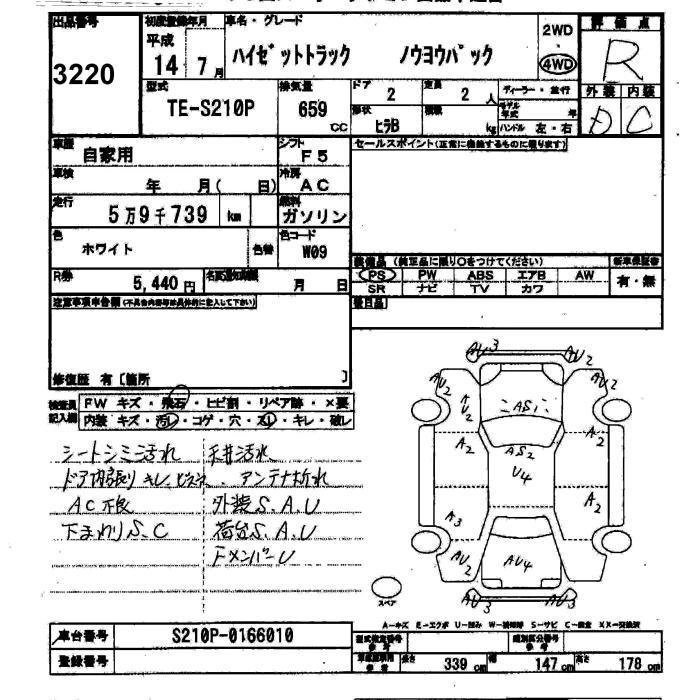 出品番号 初度登録年月 車名・グレード 2WD 評価点
3220 平成 14年 7月 ハイゼットトラック ノウヨウパック 4WD R
型式 排気量 ドア 定員 ディーラー・並行 外装 内装
TE-S210P 659 cc 2 2人 モデル年式 年 D C
形状 積載 ヒラB kg ハンドル 左・右
車歴 自家用 シフト F5 セールスポイント(正常に作動するものに限ります)
車検 年 月( 日) 冷房 AC
走行 5万9千739 km 燃料 ガソリン
色 ホワイト 色替 色コード W09
装備品 (純正品に限り〇をつけてください) 新車保証書
PS PW ABS エアB AW 有・無
SR ナビ TV カワ
R券 5,440円 月 日 後日品
注意事項申告欄(不具合内容等は具体的に記入して下さい)
修復歴 有〔箇所 〕
検査員記入欄 FW キズ・飛石・ヒビ割・リペア跡・×要
内装 キズ・汚れ・コゲ・穴・スレ・キレ・破レ
シートシミ汚れ 天井汚れ
ドア内張りキレ アンテナ折れ
AC不良 外装S.A.U
下まわりS.C 荷台S.A.U
FメンバーU
AU3 AU2
AU2 AU2
AU2 AS1
A2 AS2 A2
U4
A3 A2
AU2 AU4 AU2
AU3 AU3
スペア
A-キズ E-エクボ U-凹み W-補修跡 S-サビ C-腐食 XX-交換済
車台番号 S210P-0166010 型式指定番号 参考 類別区分番号 参考
登録番号 参考 長さ 339 cm 幅 147 cm 高さ 178 cm